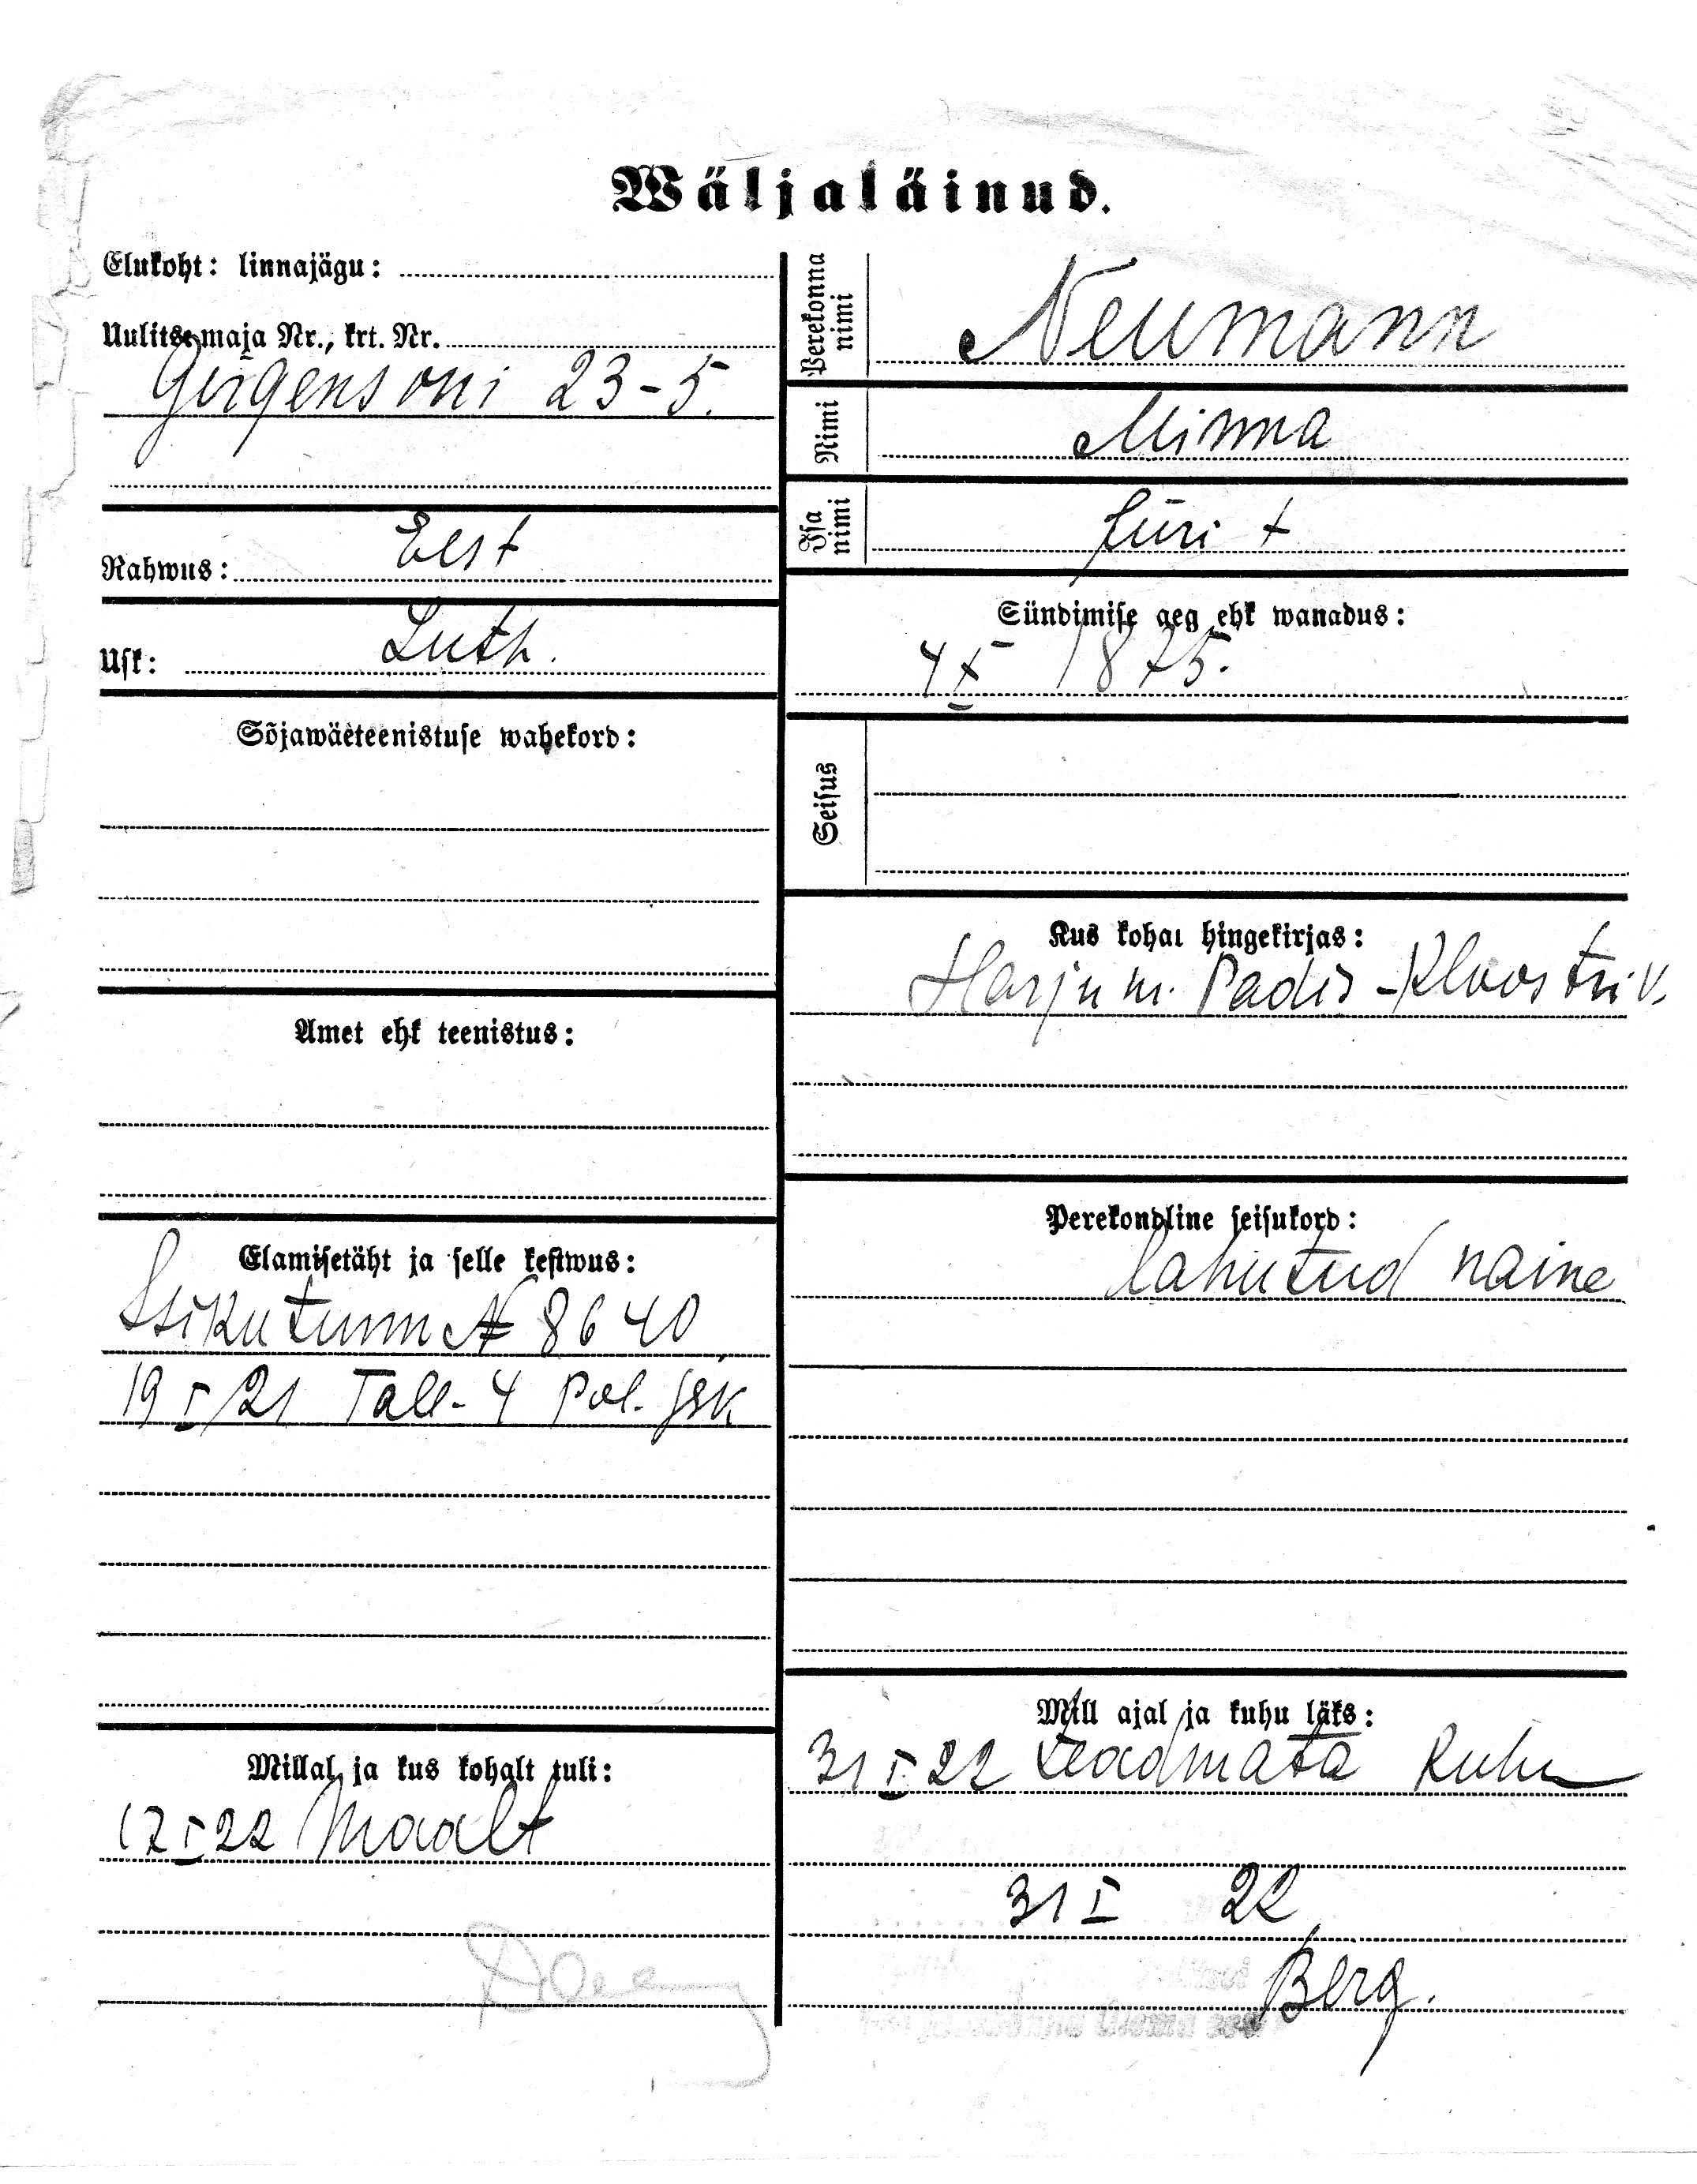 Wäljaläinud.
Elukoht: linnajägu:
Uulitse maja Nr., krt. Nr.
Girgensoni 23-5.
Rahwus: Eest
Usk: Luth.
Sõjawäeteenistuse wahekord:
Amet ehk teenistus:
Elamisetäht ja selle kestwus:
Isikutunn № 8640
19 I/21 Tall. 4 Pol. jsk
Millal ja kus kohalt tuli:
17 I 22 Maalt
Perekonna nimi
Neumann
Nimi
Minna
Isa nimi
Jüri †
Sündimise aeg ehk wanadus:
4 X 1875.
Seisus
Kus kohal hingekirjas:
Harju m. Padis-Kloostri v.
Perekondline seisukord:
lahutud naine
Mill ajal ja kuhu läks:
31 I 22 teadmata kuhu
31 I 22
Berg.